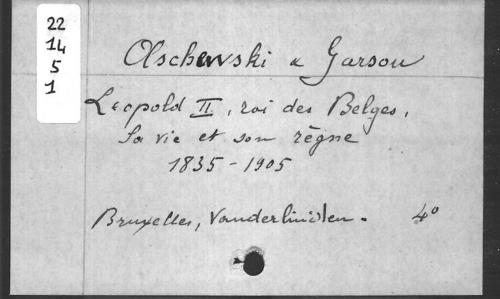 22
14
5
1
Olschewski & Garsou
Leopold II, roi des Belges,
Sa vie et son règne
1835 - 1905
Bruxelles, Vanderlinden. 4°